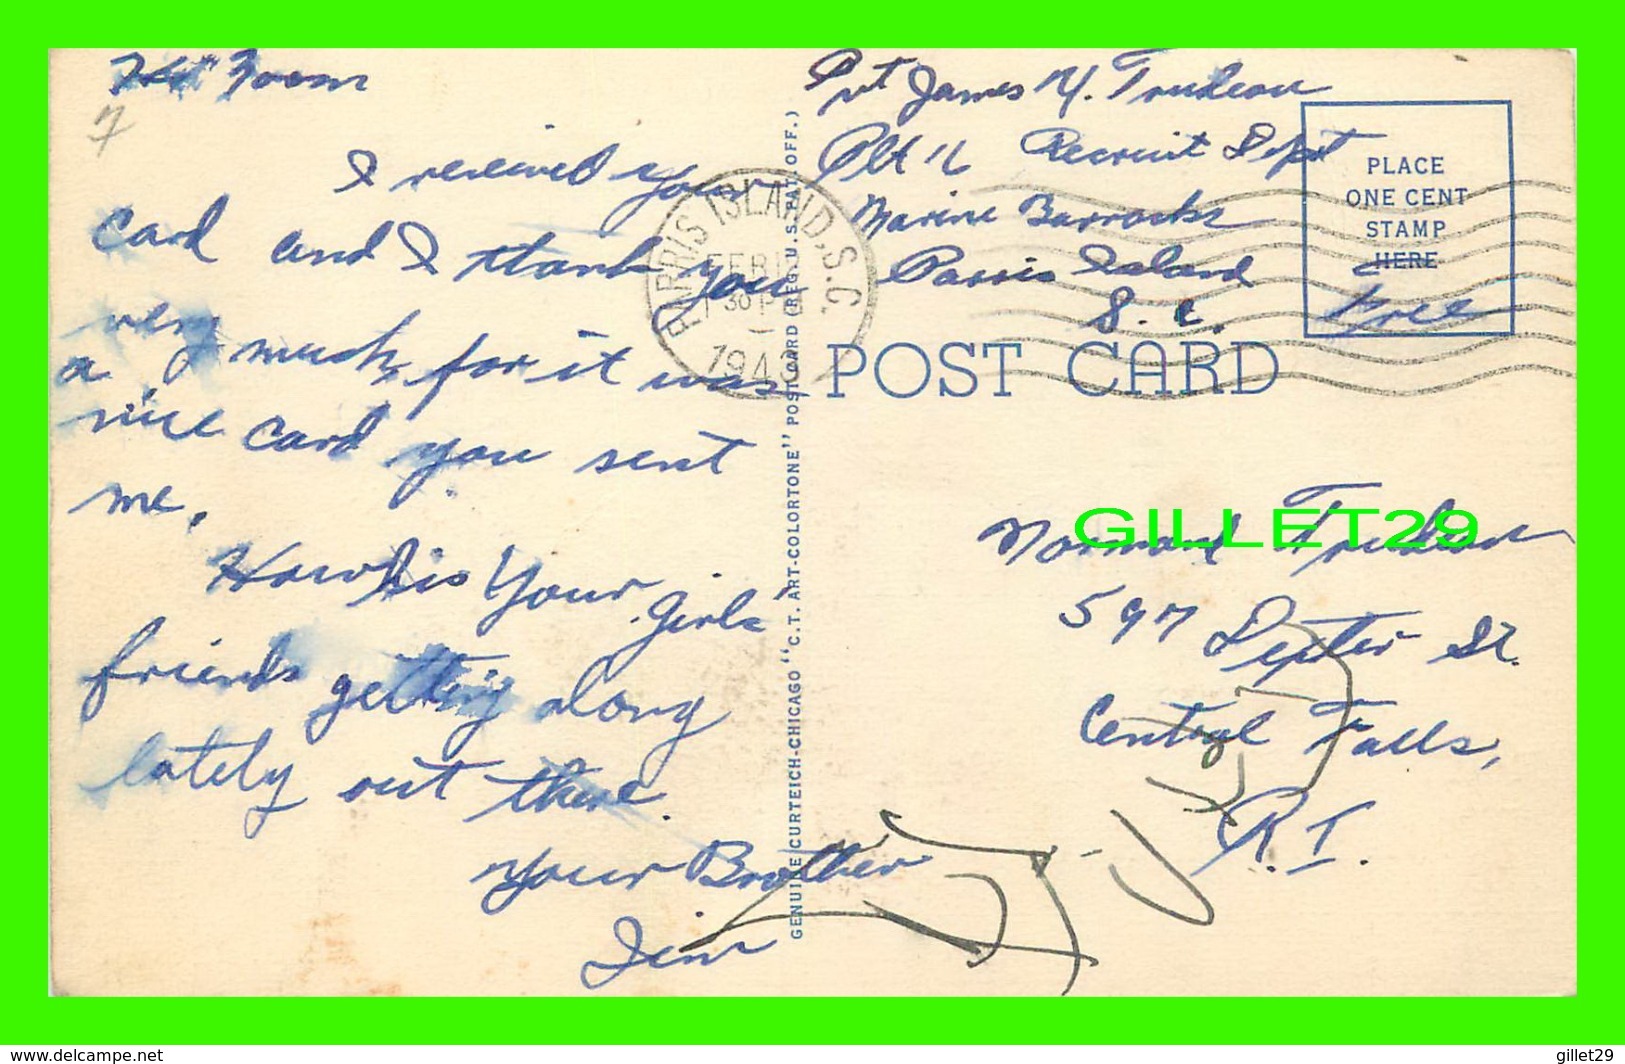 I received your
card and I thank you
very much, for it was
a nice card you sent
me.
How is your girl
friends getting along
lately out there.
Your Brother
Jim
GENUINE CURTEICH-CHICAGO "C.T. ART-COLORTONE" POST CARD (REG. U.S. PAT. OFF.)
PARRIS ISLAND, S.C.
FEB 12
30 PM
1943
Pvt James Y. Trudeau
Plt 16 Recruit Dept
Marine Barracks
Parris Island
S.C.
PLACE
ONE CENT
STAMP
HERE
Free
POST CARD
Normand Trudeau
597 Dexter St.
Central Falls,
R.I.
GILLET29
https://www.delcampe.net
gillet29